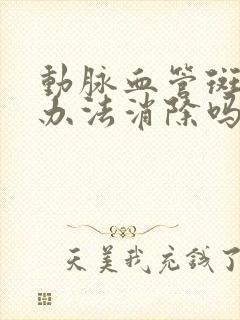 動脉血管斑
办法消除吗
天美我充钱了